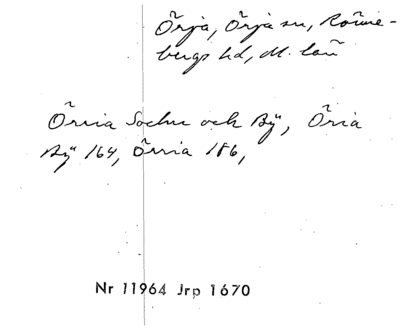 Örja, Örja sn, Rönne-
bergs hd, M. län
Örria Sochn och Bÿ, Öria
Bÿ 164, Örria 186,
Nr 11964 Jrp 1670